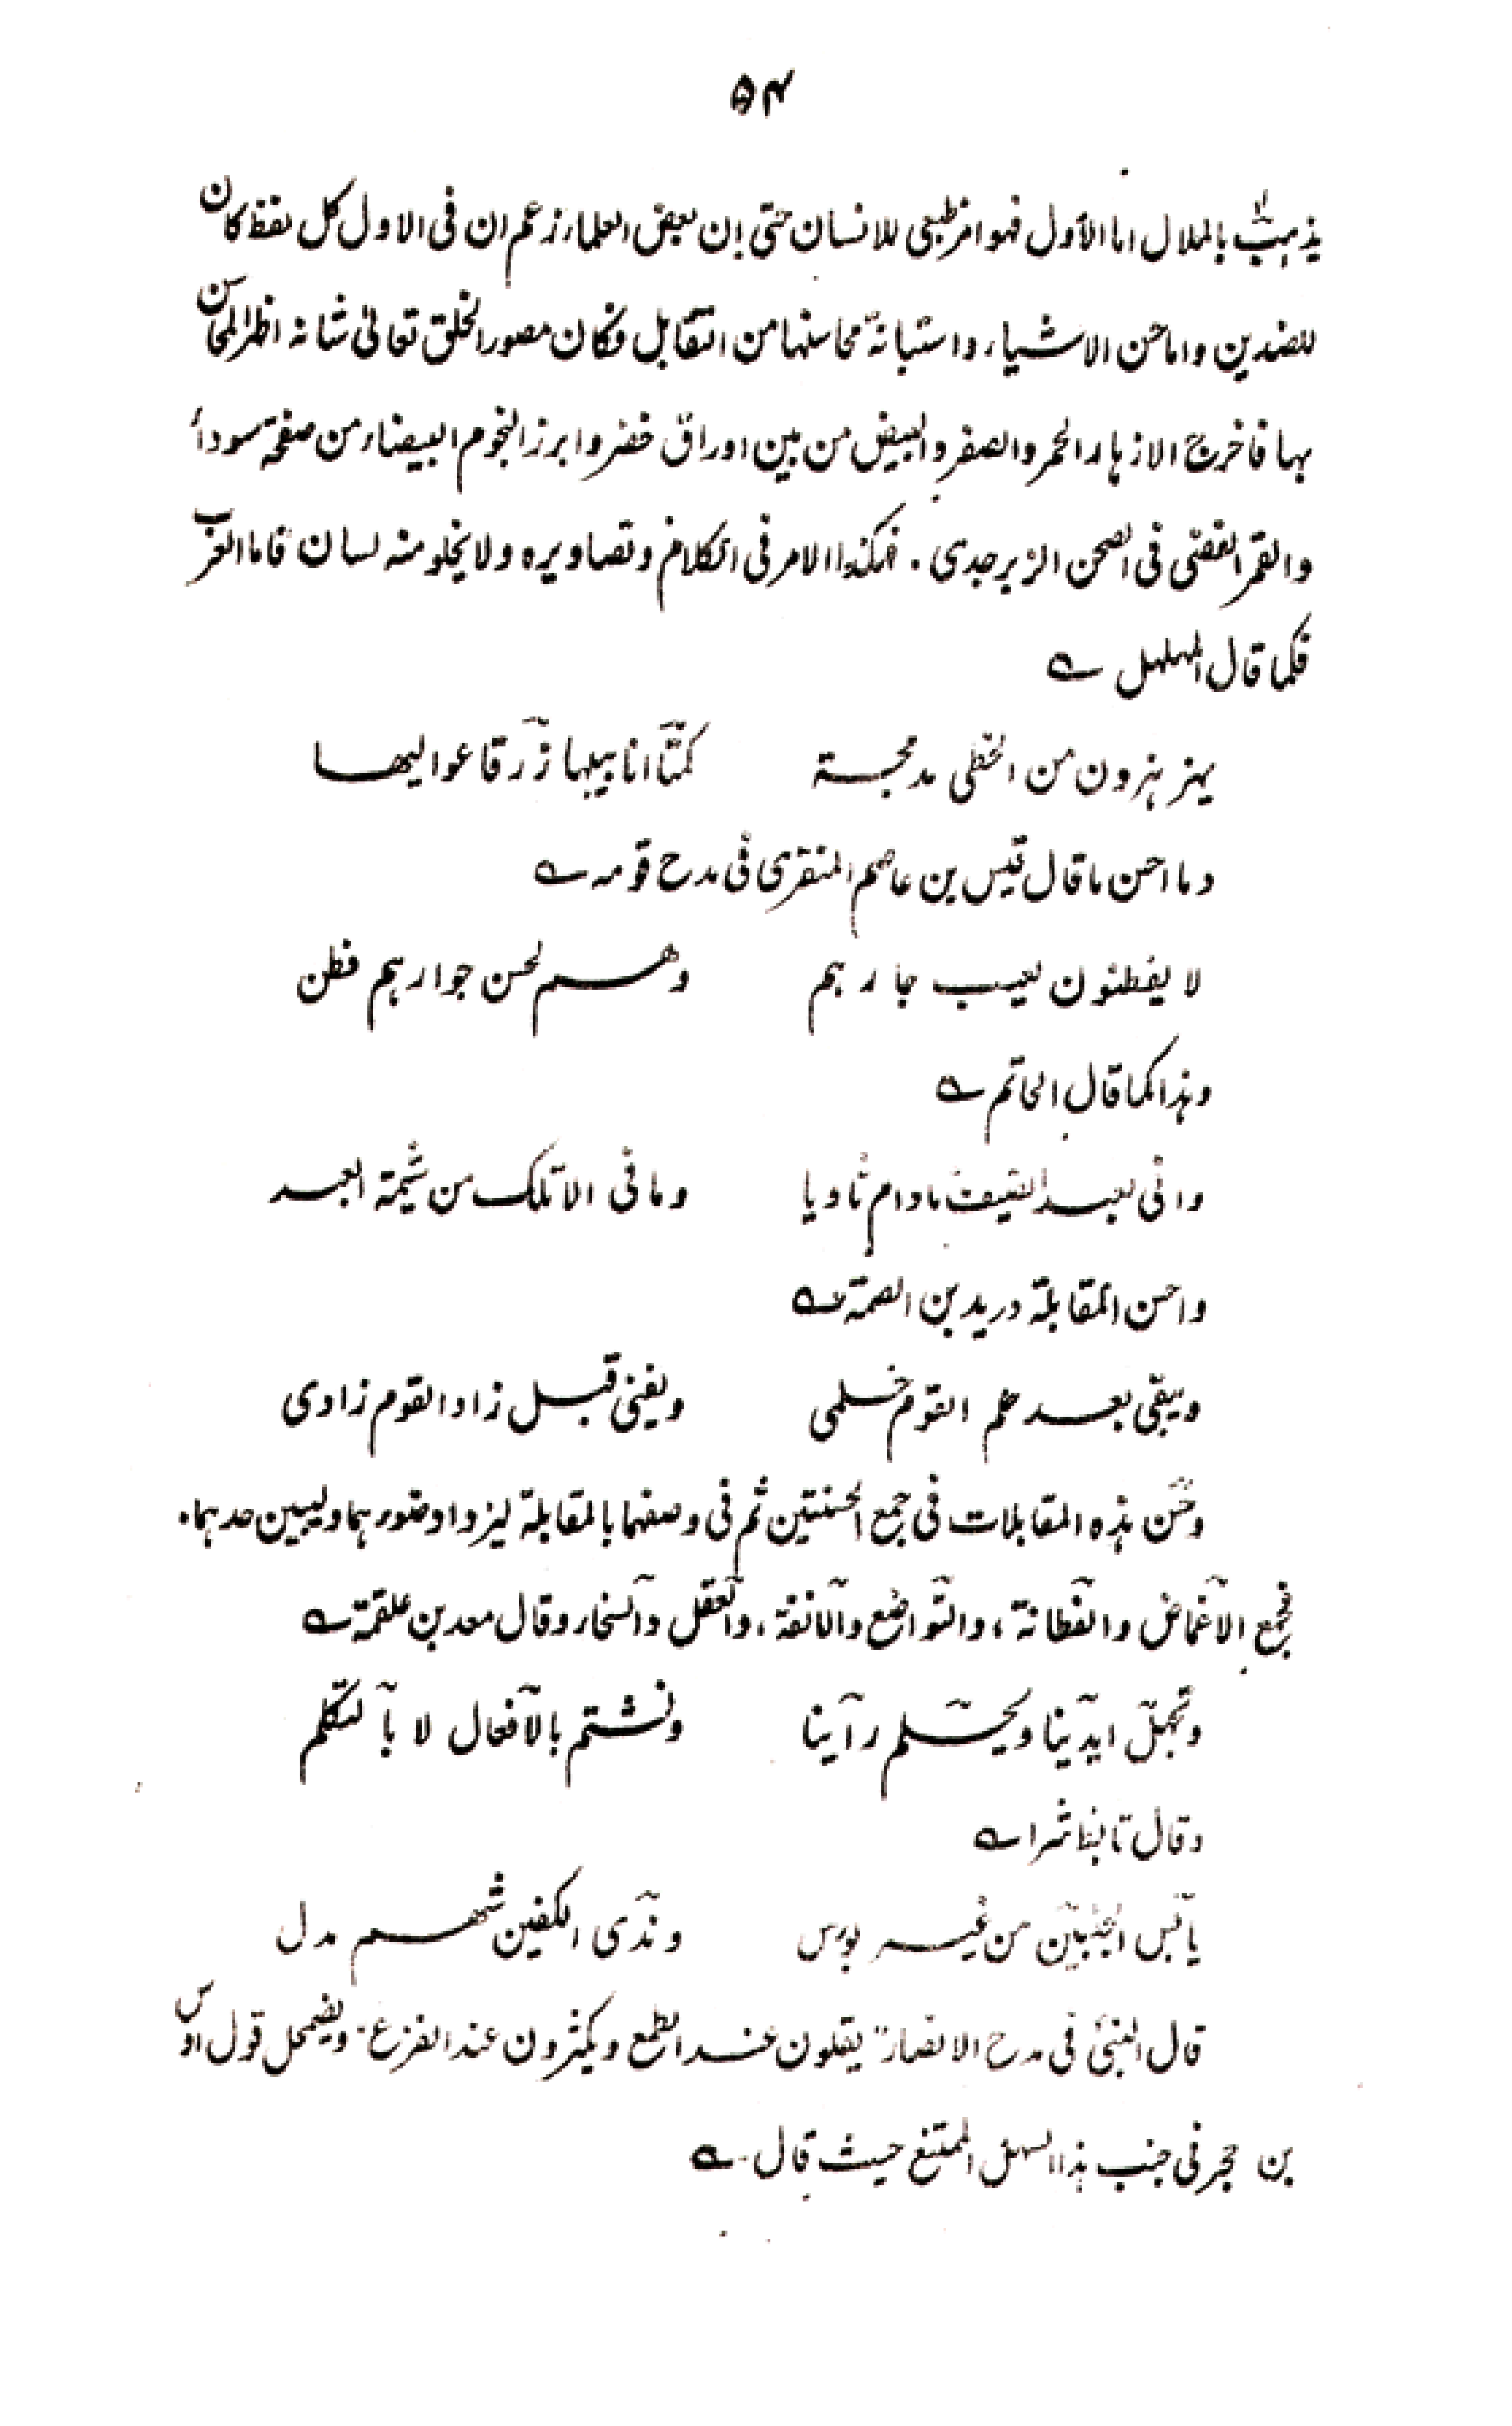 ٥٤
يذهبُ بالملال اما الأول فهو امر طبعي للانسان حتى إن بعض العلماء زعم ان فى الاول كل لفظ كان
للضدين واما حسن الاشياء واستبانة محاسنها من التقابل فكان مصور الخلق تعالى شانه اظهر المحاسن
بها فاخرج الازهار الحمر والصفر والبيض من بين اوراق خضر وابرز النجوم البيضاء من صفحة سوداء
والقمر الفضى فى الصحن الزبرجدى . فهكذا الامر فى الكلام وتصاويره ولا يخلو منه لسان فاما العرب
فكما قال المهلهل ؎
يهزهزون من الخطى مدمجة كمتا انابيبها زرقا عواليها
وما احسن ما قال قيس بن عاصم المنقرى فى مدح قومه ؎
لا يفطنون لعيب جارهم وهم لحسن جوارهم فطن
وهذا كما قال الحاتم ؎
وانى لعبد الضيف مادام ثاويا وما فى الا تلك من شيمة العبد
واحسن المقابلة دريد بن الصمة ؎
ويبقى بعد حلم القوم حلمى ويفنى قبل زاد القوم زادى
وحسن هذه المقابلات فى جمع الحسنتين ثم فى وصفهما بالمقابلة ليزداد ضورهما وليبين حدهما.
فجمع الاغماض والفطانة، والتواضع والانفة، والعقل والسخاء وقال معد بن علقمة ؎
وتجهل ايدينا ويحلم رأينا ونشتم بالافعال لا بالتكلم
وقال تابط شرا ؎
يابس الجنبين من غير بوس وندى الكفين شهم مدل
قال النبى فى مدح الانصار "يقلون عند الطمع ويكثرون عند الفزع" ويضمحل قول اوس
بن حجر فى جنب هذا السهل الممتنع حيث قال ؎